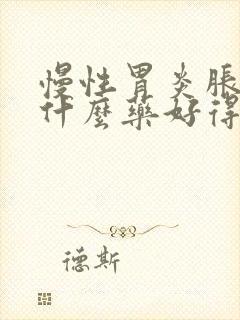 慢性胃炎脹
什麼藥好得
德斯